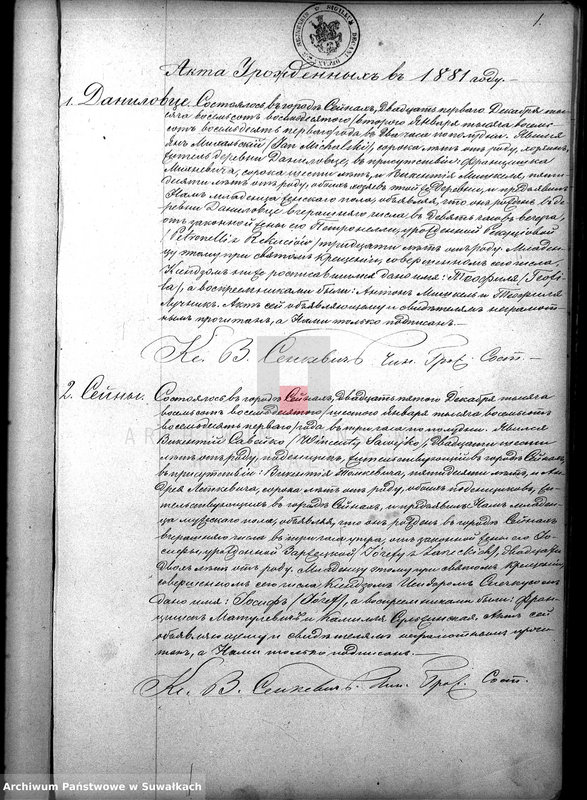 1.
Акта Урожденныхъ въ 1881 году
1. Даниловце. Состоялось въ городѣ Сейнахъ, Двадцать перваго Декабря ты-
сяча восемьсотъ восьмидесятого/второго Января тысяча восемь-
сотъ восемьдесятъ перваго года въ два часа по полудни. Явился
Янъ Михальскій /Jan Michalski/, сорока лѣтъ отъ роду,
житель деревни Даниловце, въ присутствіи Францишка
сорока шести лѣтъ, и Викентія пяти-
десяти лѣтъ отъ роду, обоихъ той же деревни, и предъявилъ
Намъ младенца женскаго пола, объявляя, что онъ рожденъ въ де-
ревни Даниловце вчерашняго числа въ девять часовъ вечера,
отъ законной жены его Петронели, урожденной
/Petronelli z тридцати лѣтъ отъ роду. Младен-
цу этому при святомъ крещеніи, совершенномъ сего числа,
Ксендзомъ ниже росписавшимся дано имя: Теофиля /Teofi-
la/, а воспреемниками были: Антонъ и Теофиля
Акт сей объявляющему и свидѣтелямъ неграмот-
нымъ прочитанъ, а Нами только подписанъ.—
Кс. В. Сенкевичъ. Чин. Граж. Сост.
2. Сейны. Состоялось въ городѣ Сейнахъ, двадцать пятого Декабря тысяча
восемьсотъ восьмидесятого/шестого Января тысяча восемьсотъ
восемьдесятъ перваго/года въ три часа по полудни. Явился
Викентій Савейко /Wincenty Sawejko/ Двадцати шести
лѣтъ отъ роду, поденщикъ, жительствующій въ городѣ Сейнахъ
въ присутствіи: Викентія пятидесяти лѣтъ, и Ан-
дрея сорока лѣтъ отъ роду, обоихъ поденщиковъ, жи-
тельствующихъ въ городѣ Сейнахъ, и предъявилъ Намъ младен-
ца мужскаго пола, объявляя, что онъ рожденъ въ городѣ Сейнахъ
вчерашняго числа въ три часа утра, отъ законной жены его Іо-
сефы, урожденной Зарецкой /Józefy z Zareckich/, двадцати
двохъ лѣтъ отъ роду. Младенцу этому при святомъ крещеніи,
совершенномъ сего числа Ксендзомъ
дано имя: Іосифъ /Józef/, а воспреемниками были: Фран-
цишекъ и Камиля Акт сей
объявляющему и свидѣтелямъ неграмотнымъ прочи-
танъ, а Нами только подписанъ.—
Кс. В. Сенкевичъ. Чин. Граж. Сост.
Archiwum Państwowe w Suwałkach